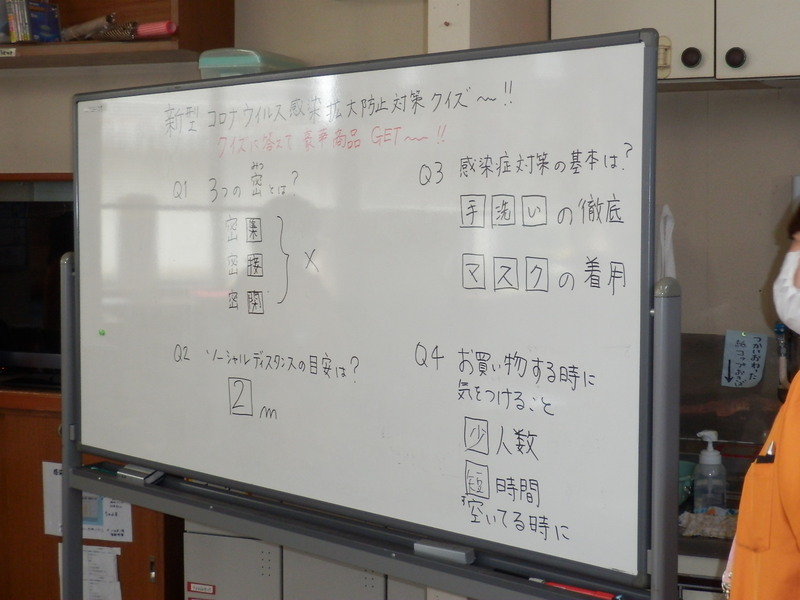 新型コロナウイルス感染拡大防止対策クイズ〜!!
クイズに答えて豪華商品GET〜!!
Q1 3つの密とは?
みつ
密集
密接
密閉
×
Q2 ソーシャルディスタンスの目安は?
2m
Q3 感染症対策の基本は?
手洗いの徹底
マスクの着用
Q4 お買い物する時に
気をつけること
少人数
短時間
空いてる時に
つかいおわった
紙コップおきば
↓